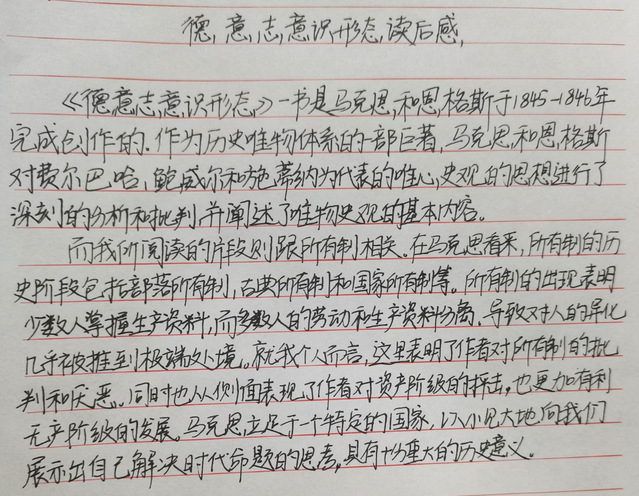 德意志意识形态读后感
《德意志意识形态》一书是马克思和恩格斯于1845-1846年
完成创作的.作为历史唯物体系的一部巨著,马克思和恩格斯
对费尔巴哈,鲍威尔和施蒂纳为代表的唯心史观的思想进行了
深刻的分析和批判,并阐述了唯物史观的基本内容。
而我所阅读的片段则跟所有制相关.在马克思看来,所有制的历
史阶段包括部落所有制,古典所有制和国家所有制等。所有制的出现表明
少数人掌握生产资料,而多数人的劳动和生产资料分离,导致对人的异化
几乎被推到极端的处境。就我个人而言,这里表明了作者对所有制的批
判和厌恶。同时也从侧面表现了作者对资产阶级的抨击,也更加有利
无产阶级的发展。马克思立足于一个特定的国家,以小见大地向我们
展示出自己解决时代命题的思考,具有十分重大的历史意义。